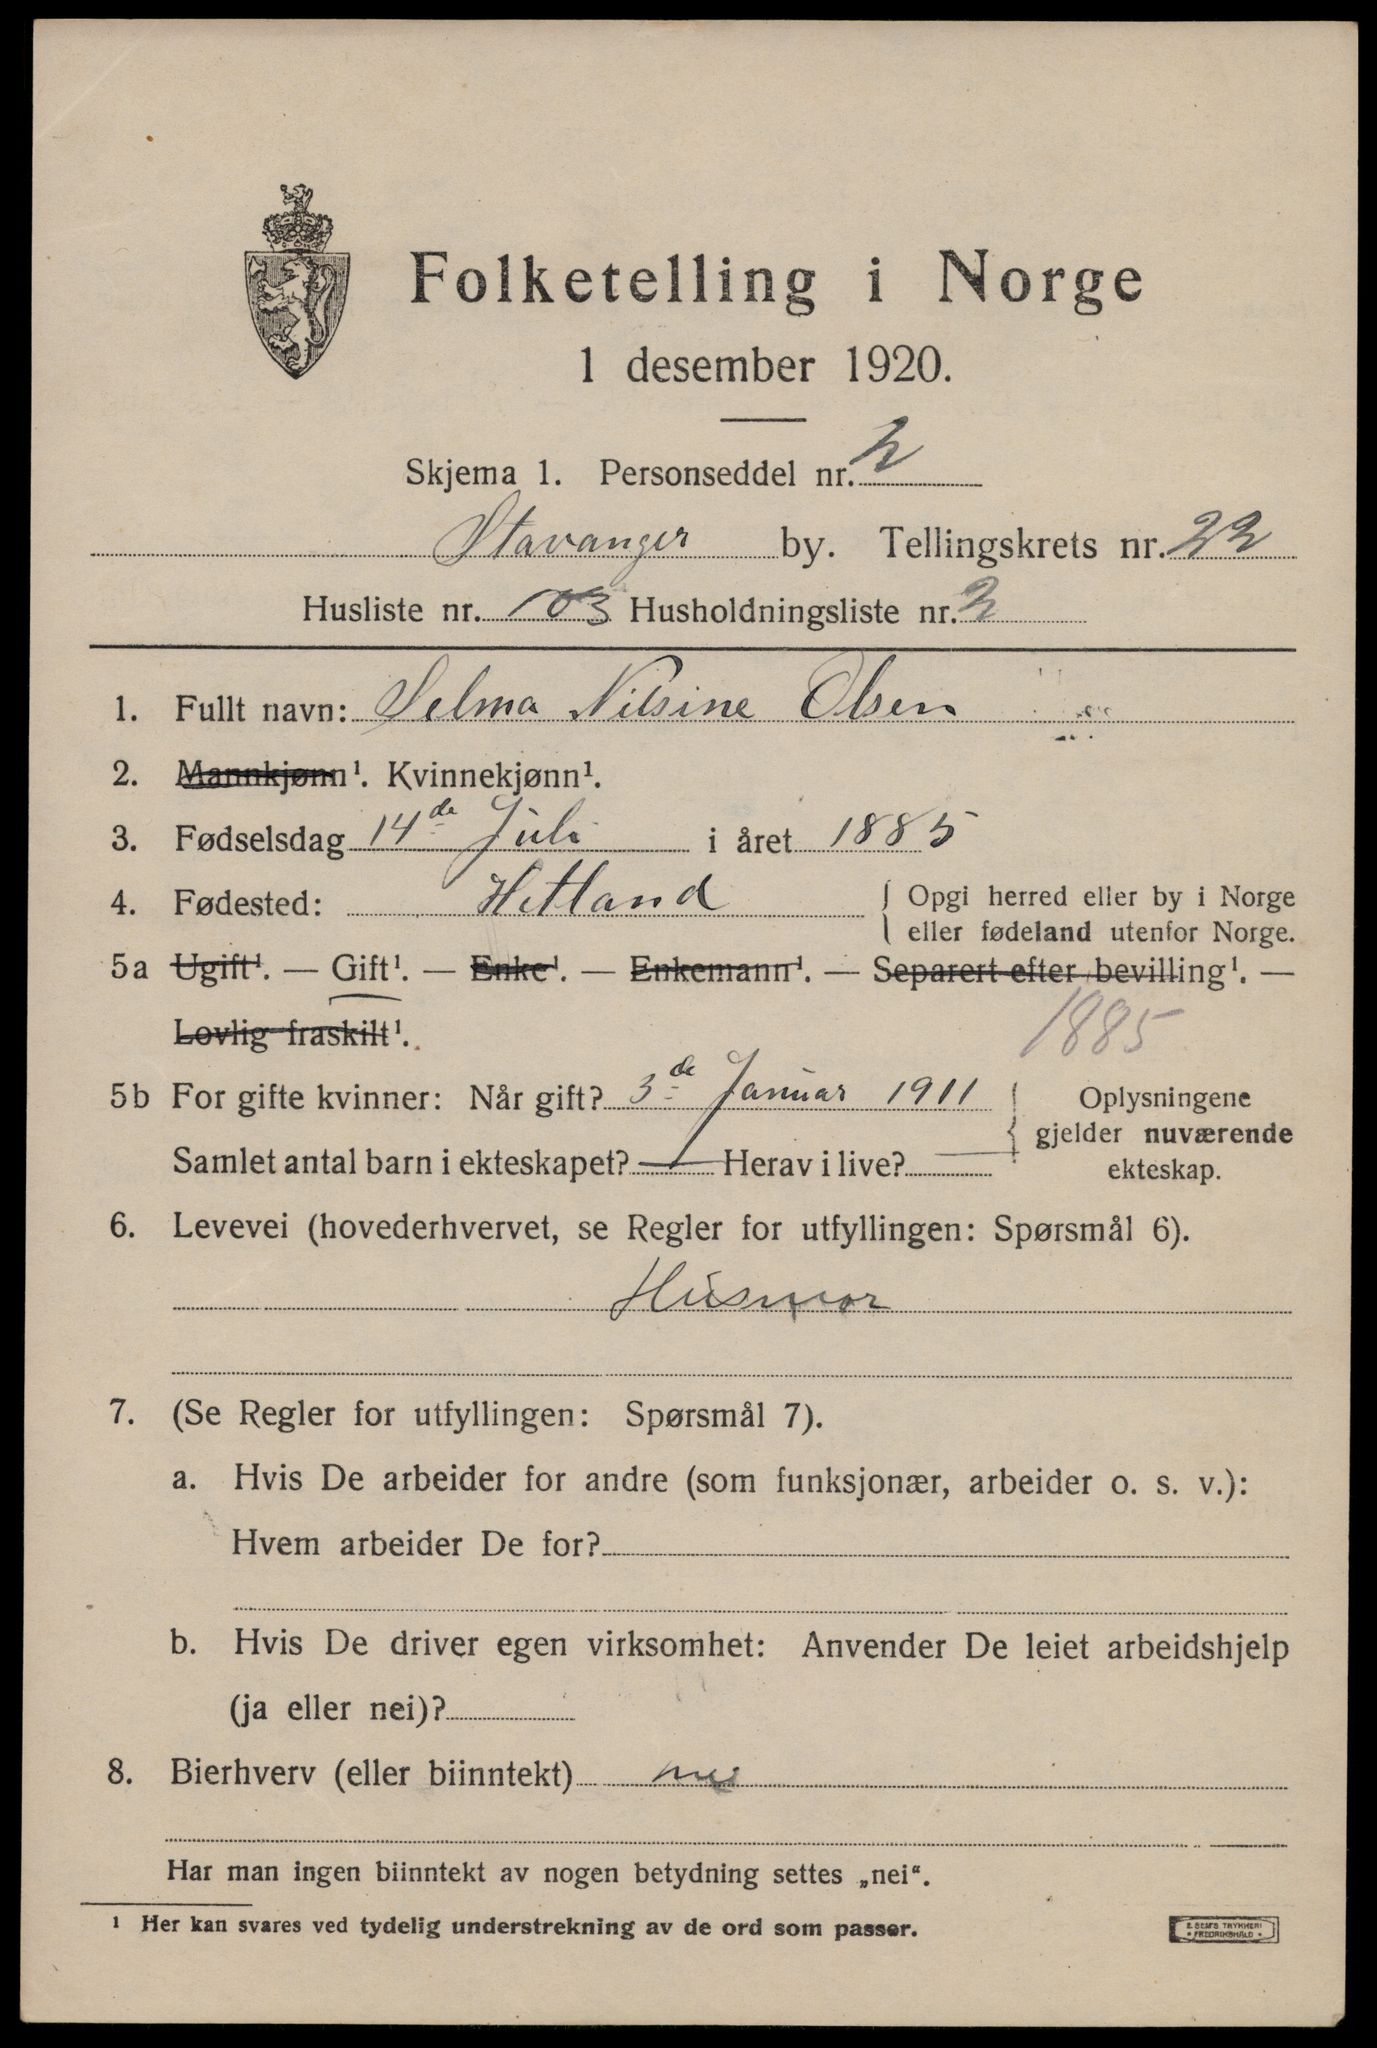 Folketelling i Norge
1 desember 1920.
Skjema 1. Personseddel nr. 2
Stavanger by. Tellingskrets nr. 22
Husliste nr. 103 Husholdningsliste nr. 2
1. Fullt navn: Selma Nilsine Olsen
2. Mannkjønn¹. Kvinnekjønn¹.
3. Fødselsdag 14de Juli i året 1885
4. Fødested: Hetland { Opgi herred eller by i Norge
eller fødeland utenfor Norge.
5a Ugift¹. — Gift¹. — Enke¹. — Enkemann¹. — Separert efter bevilling¹. —
Lovlig fraskilt¹.
1885
5b For gifte kvinner: Når gift? 3de Januar 1911 { Oplysningene
gjelder nuværende
ekteskap.
Samlet antal barn i ekteskapet? — Herav i live? —
6. Levevei (hovederhvervet, se Regler for utfyllingen: Spørsmål 6).
Husmor
7. (Se Regler for utfyllingen: Spørsmål 7).
a. Hvis De arbeider for andre (som funksjonær, arbeider o. s. v.):
Hvem arbeider De for?
b. Hvis De driver egen virksomhet: Anvender De leiet arbeidshjelp
(ja eller nei)?
8. Bierhverv (eller biinntekt) nei
Har man ingen biinntekt av nogen betydning settes „nei“.
¹ Her kan svares ved tydelig understrekning av de ord som passer.
E. SEM'S TRYKKERI
• FREDRIKSHALD •